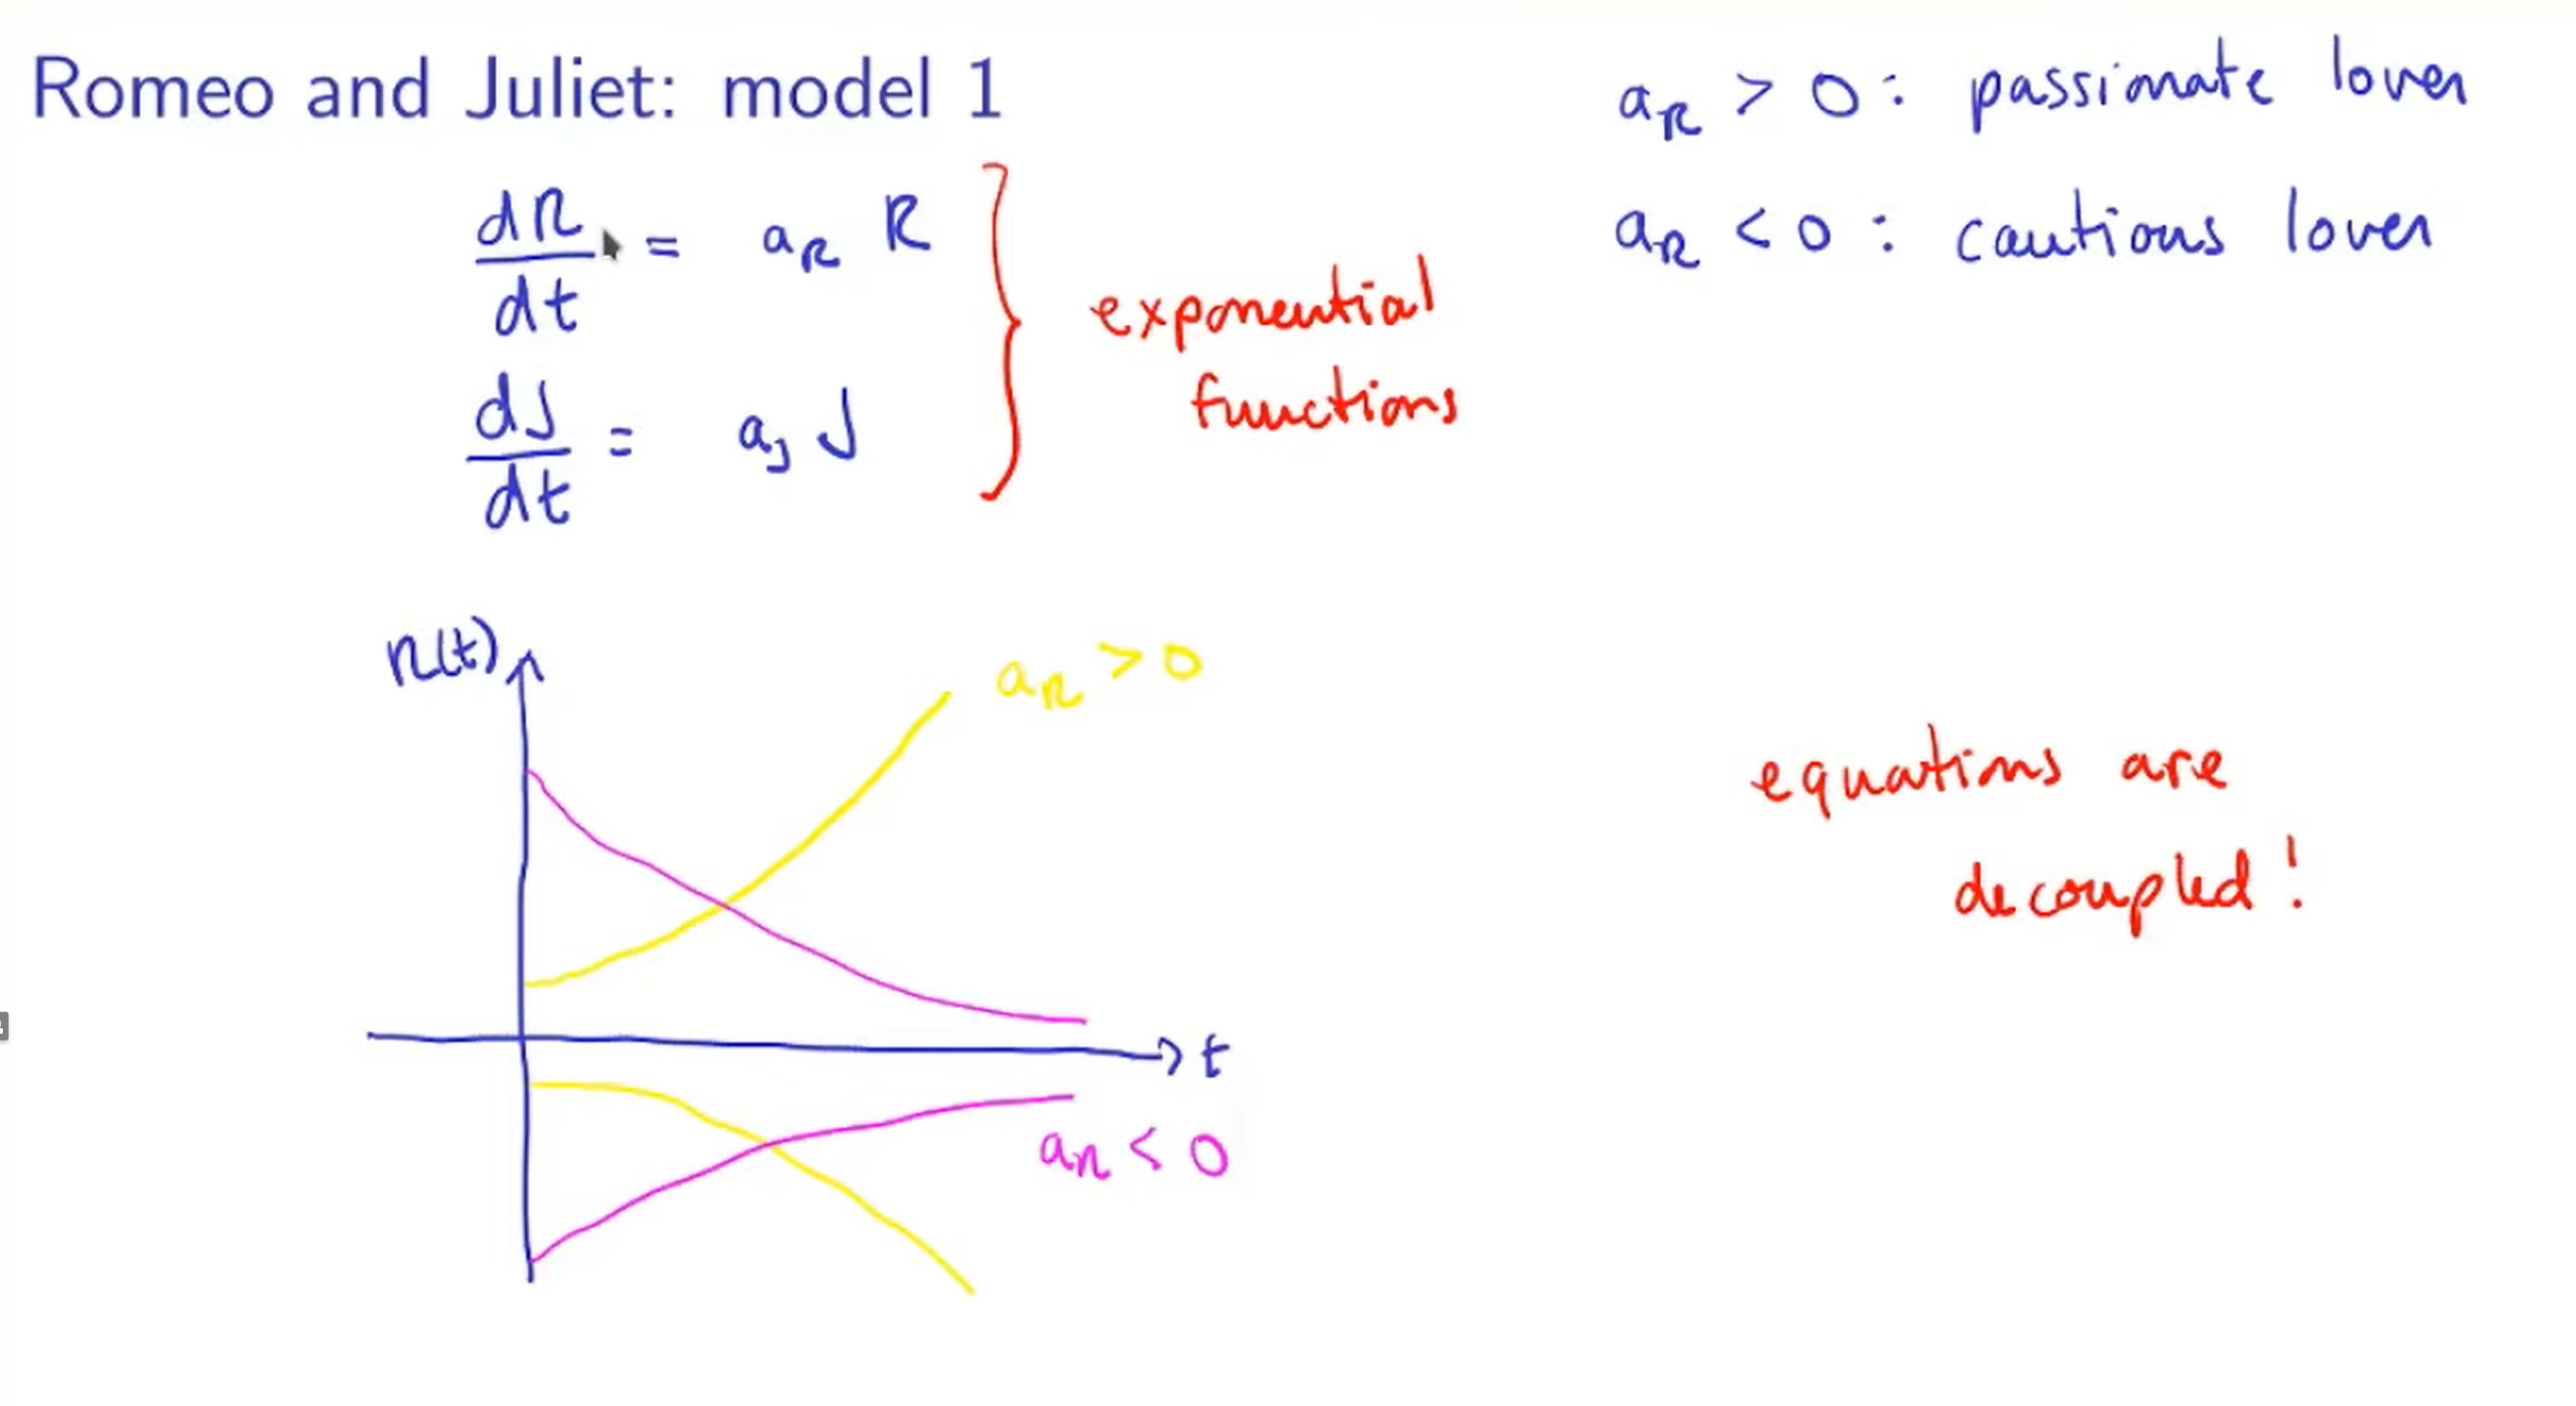 Romeo and Juliet: model 1
a_R > 0: passionate lover
a_R < 0: cautious lover
dR/dt = a_R R
dJ/dt = a_J J
exponential
functions
R(t)
a_R > 0
t
a_R < 0
equations are
decoupled!